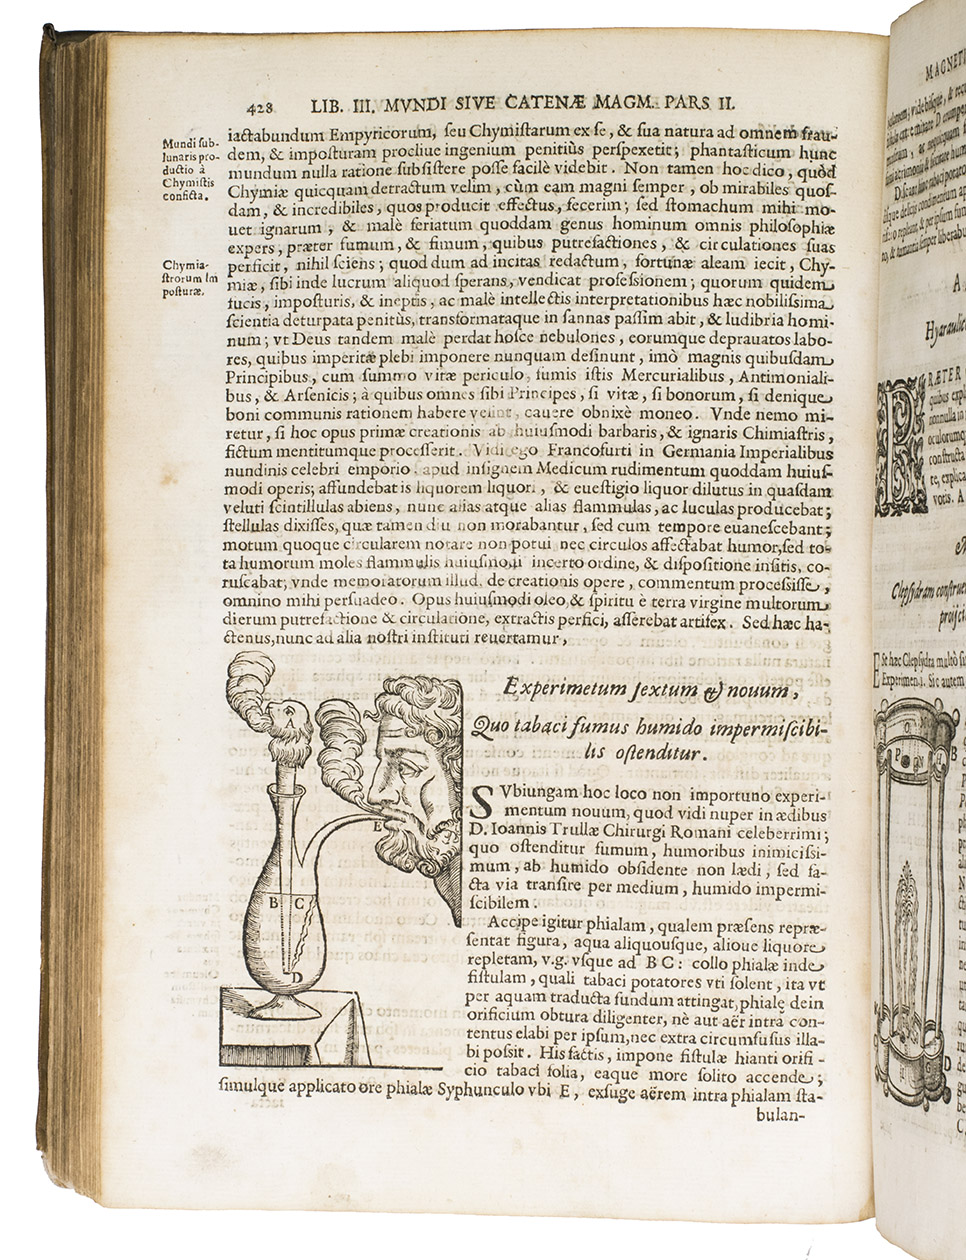 428 LIB. III. MVNDI SIVE CATENÆ MAGM. PARS II.
Mundi sub-
lunaris pro-
ductio à
Chymistis
conficta.
iactabundum Empyricorum, ſeu Chymiſtarum ex ſe, & ſua natura ad omnem frau-
dem, & impoſturam procliue ingenium penitiùs perſpexetit; phantaſticum hunc
mundum nulla ratione ſubſiſtere poſſe facilè videbit. Non tamen hoc dico, quòd
Chymiæ quicquam detractum velim, cùm eam magni ſemper, ob mirabiles quoſ-
dam, & incredibiles, quos producit effectus, fecerim; ſed ſtomachum mihi mo-
uet ignarum, & malè feriatum quoddam genus hominum omnis philoſophiæ
expers, præter fumum, & fimum, quibus putrefactiones, & circulationes ſuas
Chymia-
ſtrorum Im
poſturæ.
perficit, nihil ſciens; quod dum ad incitas redactum, fortunæ aleam iecit, Chy-
miæ, ſibi inde lucrum aliquod ſperans, vendicat profeſſionem; quorum quidem
fucis, impoſturis, & ineptis, ac malè intellectis interpretationibus hæc nobiliſſima
ſcientia deturpata penitùs, transformataque in ſannas paſſim abit, & ludibria homi-
num; vt Deus tandem malè perdat hoſce nebulones, eorumque deprauatos labo-
res, quibus imperitæ plebi imponere nunquam deſinunt, imò magnis quibuſdam
Principibus, cum ſummo vitæ periculo, fumis iſtis Mercurialibus, Antimoniali-
bus, & Arſenicis; à quibus omnes ſibi Principes, ſi vitæ, ſi bonorum, ſi denique
boni communis rationem habere velint, cauere obnixè moneo. Vnde nemo mi-
retur, ſi hoc opus primæ creationis ab huiuſmodi barbaris, & ignaris Chimiaſtris,
fictum mentitumque proceſſerit. Vidi ego Francofurti in Germania Imperialibus
nundinis celebri emporio, apud inſignem Medicum rudimentum quoddam huiuſ-
modi operis; affundebat is liquorem liquori, & eueſtigio liquor dilutus in quaſdam
veluti ſcintillulas abiens, nunc alias atque alias flammulas, ac luculas producebat;
ſtellulas dixiſſes, quæ tamen diu non morabantur, ſed cum tempore euaneſcebant;
motum quoque circularem notare non potui nec circulos affectabat humor, ſed to-
ta humorum moles flammulis huiuſmodi incerto ordine, & diſpoſitione inſitis, co-
ruſcabat; vnde memoratorum illud de creationis opere, commentum proceſſiſſe,
omnino mihi perſuadeo. Opus huiuſmodi oleo, & ſpiritu è terra virgine multorum
dierum putrefactione & circulatione, extractis perfici, aſſerebat artifex. Sed hæc ha-
ctenus, nunc ad alia noſtri inſtituti reuertamur,
Experimetum ſextum & nouum,
Quo tabaci fumus humido impermiſcibi-
lis oſtenditur.
SVbiungam hoc loco non importuno experi-
mentum nouum, quod vidi nuper in ædibus
D. Ioannis Trullæ Chirurgi Romani celeberrimi;
quo oſtenditur fumum, humoribus inimiciſſi-
mum, ab humido obſidente non lædi, ſed fa-
cta via tranſire per medium, humido impermi-
ſcibilem.
Accipe igitur phialam, qualem præſens repræ-
ſentat figura, aqua aliquouſque, alioue liquore
repletam, v.g. vſque ad B C: collo phialæ inde
fiſtulam, quali tabaci potatores vti ſolent, ita vt
per aquam traducta fundum attingat, phialę dein
orificium obtura diligenter, nè aut aër intra con-
tentus elabi per ipſum, nec extra circumfuſus illa-
bi poſſit. His factis, impone fiſtulæ hianti orifi-
cio tabaci folia, eaque more ſolito accende;
ſimulque applicato ore phialæ Syphunculo vbi E, exſuge aërem intra phialam ſta-
bulan-
E
B C
D
MAGNETI
Hydraulic
RÆTER
quibus exp
nonnulla in
oculorumq
conſtructa
te, explica
votis. A
Clepſydram conſtrue
proijci
ESt hæc Clepſydra multò ſu
Sic autem
O
P N H
B
D